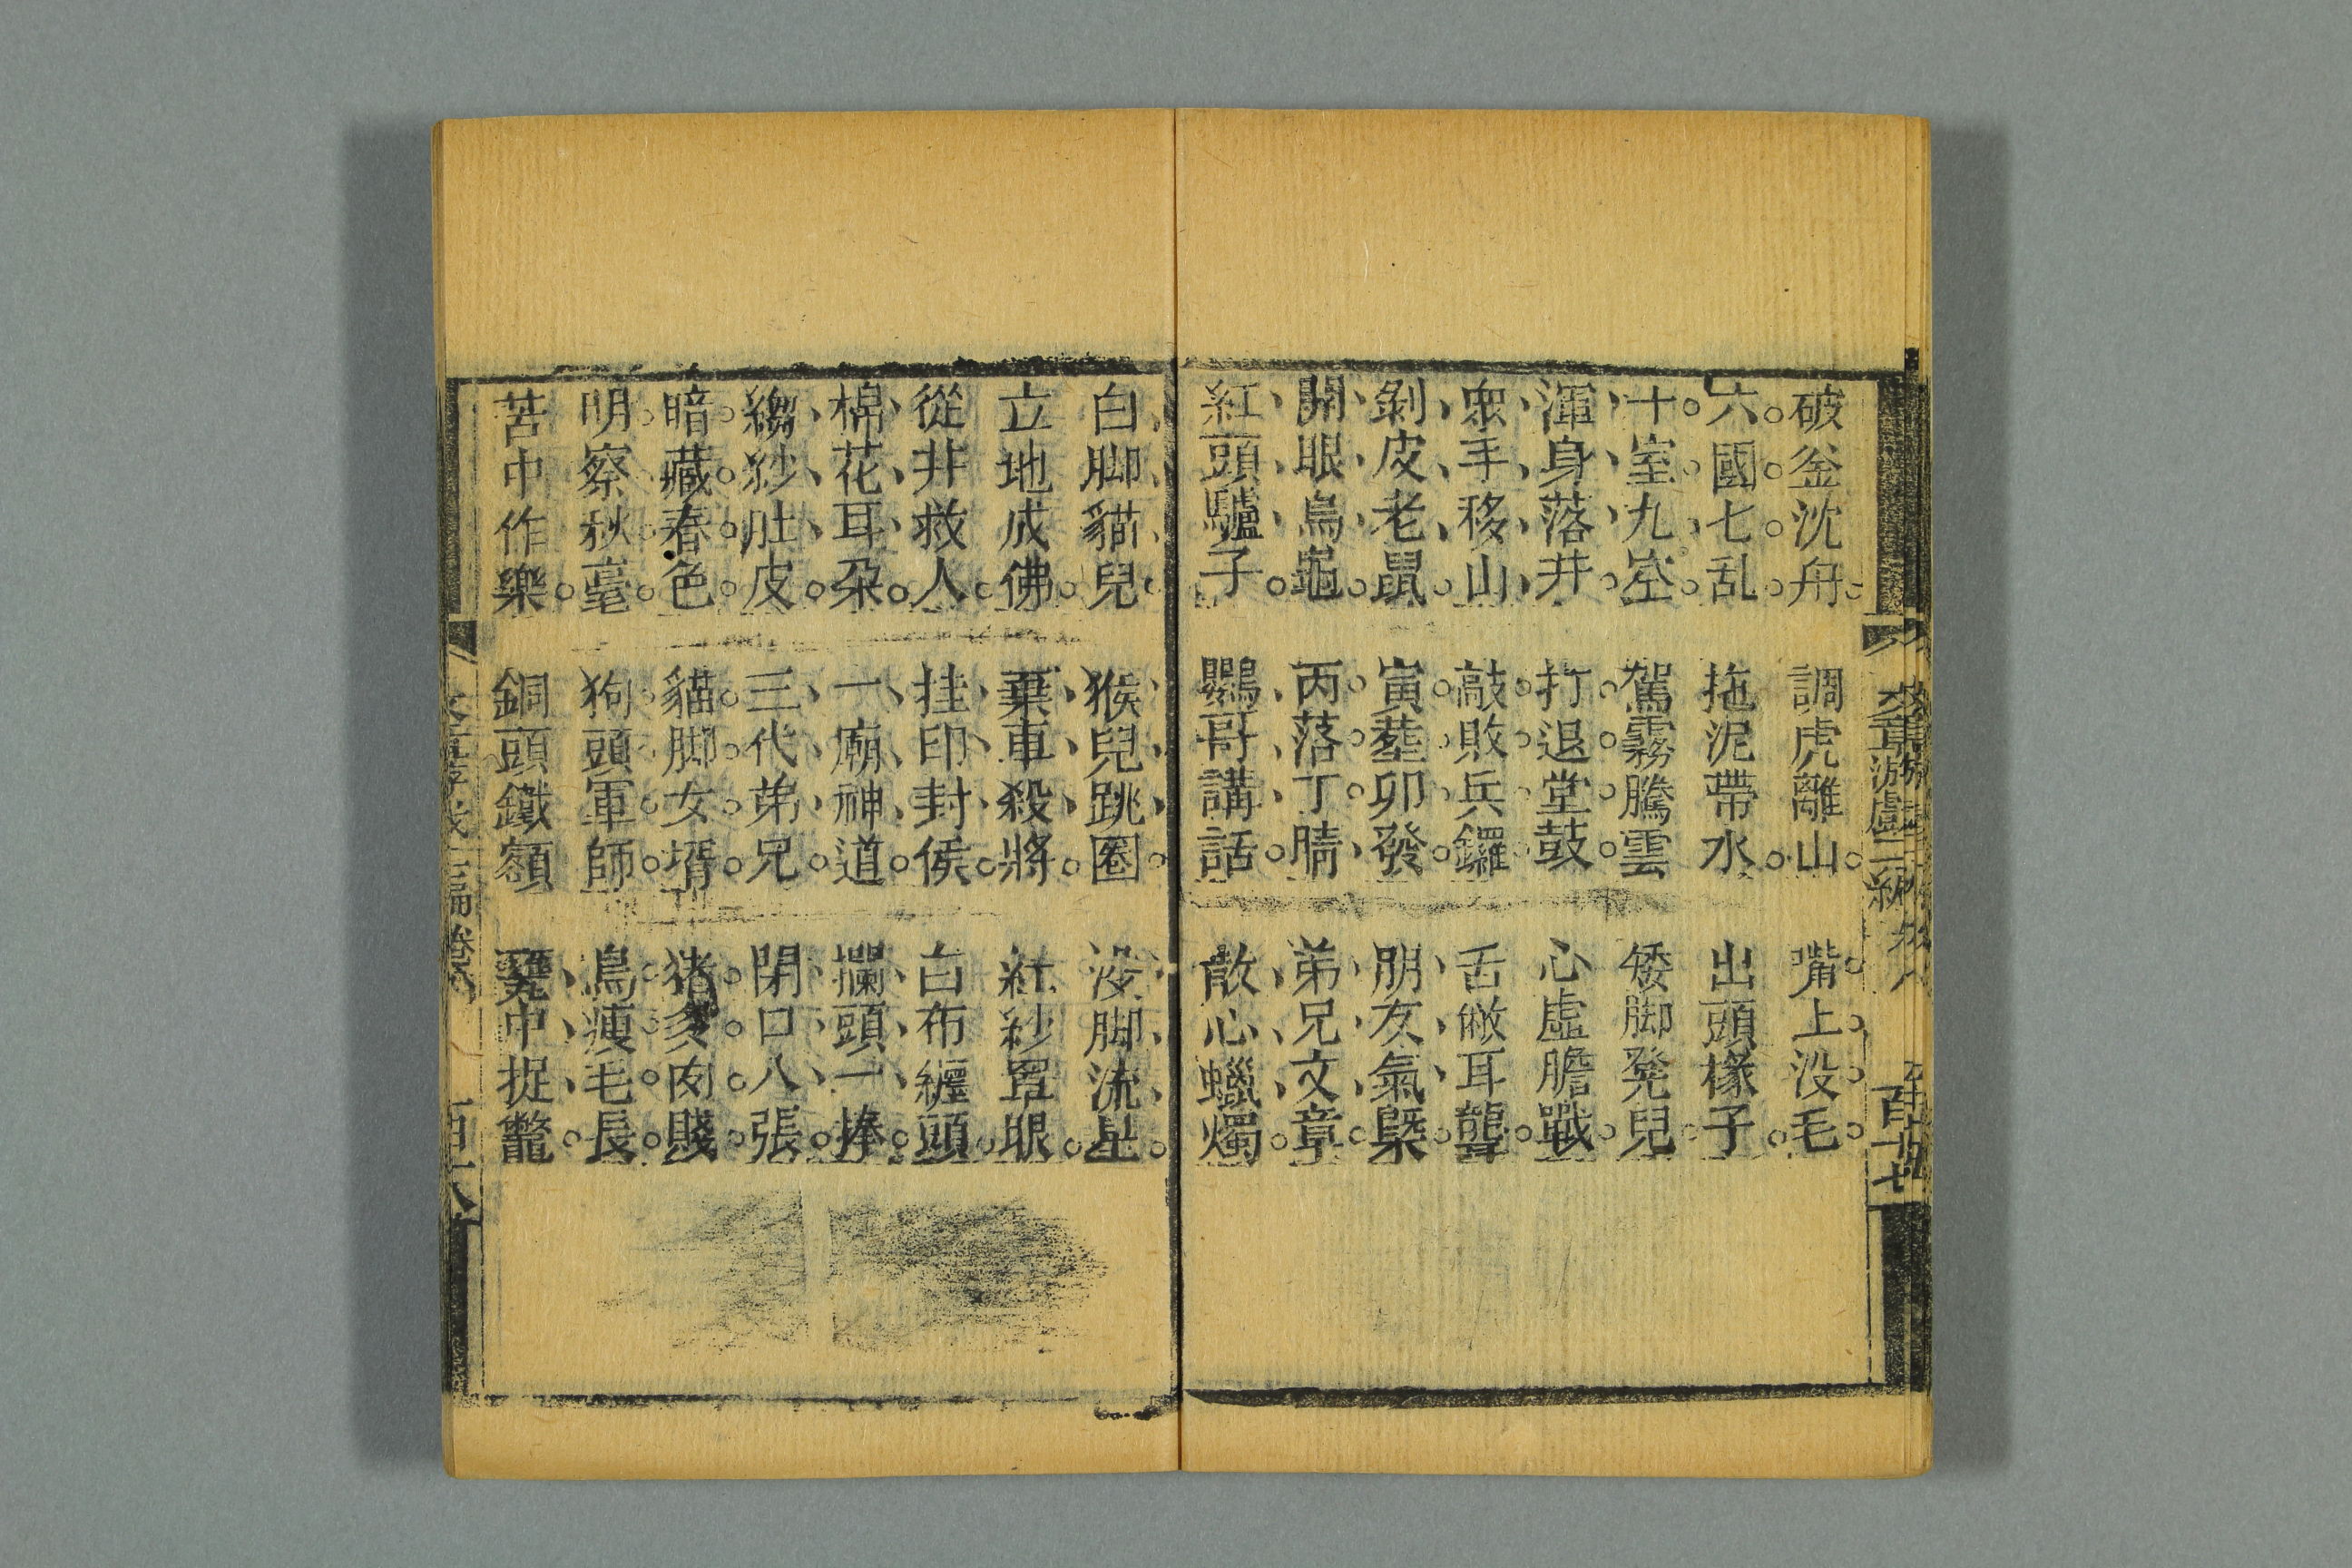 破釜沈舟　調虎離山　嘴上没毛
六國七乱　拖泥帶水　出頭椽子
十室九空　駕霧騰雲　矮脚凳兒
渾身落井　打退堂鼓　心虛膽戰
衆手移山　敲敗兵鑼　舌㘘耳聾
剝皮老鼠　寅蕐卯發　朋友氣槩
開眼烏龜　丙落丁晴　弟兄文章
紅頭驢子　鸚哥講話　散心蠟燭
白脚貓兒　猴兒跳圈　没脚流星
立地成佛　棄車殺將　紅紗罩眼
從井救人　挂印封侯　白布纏頭
棉花耳朵　一廟神道　攔頭一捧
縐紗肚皮　三代弟兄　閉口八張
暗藏春色　貓脚女壻　猪多肉賤
明察秋毫　狗頭軍師　鳥瘦毛長
苦中作樂　銅頭鐵額　甕中捉鼈